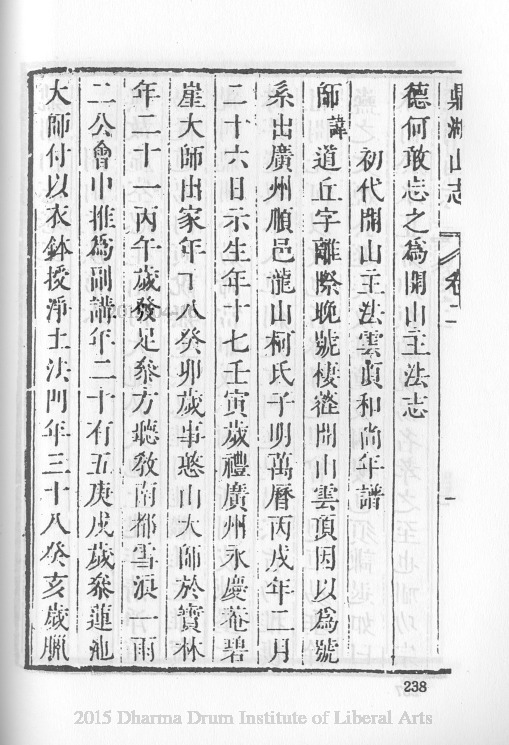 鼎湖山志 卷二 一
德何敢忘之為開山主法志
初代開山主法雲頂和尚年譜
師諱道丘字離際晚號棲壑開山雲頂因以為號
系出廣州順邑龍山柯氏子明萬曆丙戌年二月
二十六日示生年十七壬寅歲禮廣州永慶菴碧
崖大師出家年十八癸卯歲事憨山大師於寶林
年二十一丙午歲發足參方聽教南都雪浪一雨
二公會中推為副講年二十有五庚戌歲參蓮池
大師付以衣鉢授淨土法門年三十八癸亥歲臘
238
2015 Dharma Drum Institute of Liberal Arts